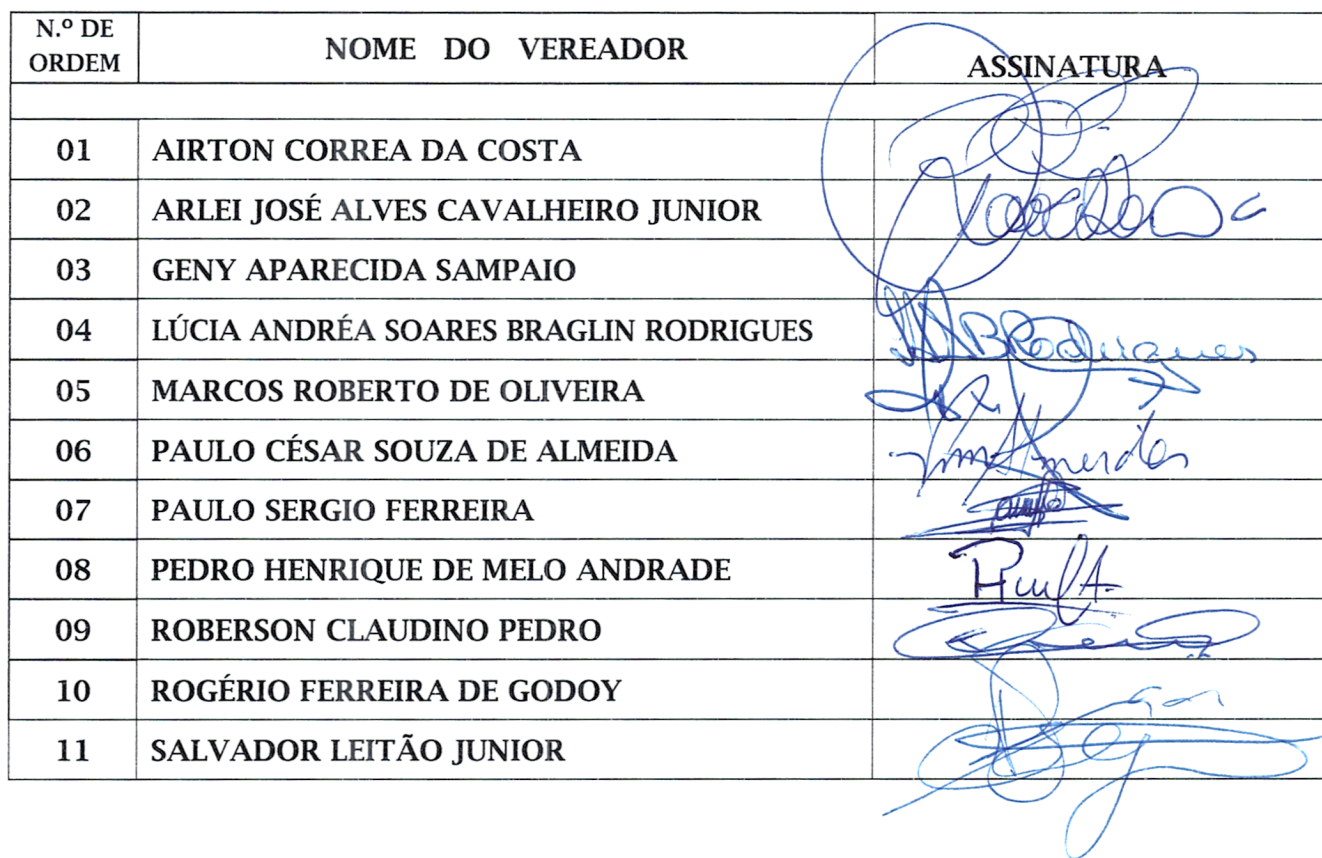 N.º DE ORDEM NOME DO VEREADOR ASSINATURA
01 AIRTON CORREA DA COSTA
02 ARLEI JOSÉ ALVES CAVALHEIRO JUNIOR
03 GENY APARECIDA SAMPAIO
04 LÚCIA ANDRÉA SOARES BRAGLIN RODRIGUES BRodrigues
05 MARCOS ROBERTO DE OLIVEIRA
06 PAULO CÉSAR SOUZA DE ALMEIDA
07 PAULO SERGIO FERREIRA
08 PEDRO HENRIQUE DE MELO ANDRADE
09 ROBERSON CLAUDINO PEDRO
10 ROGÉRIO FERREIRA DE GODOY
11 SALVADOR LEITÃO JUNIOR